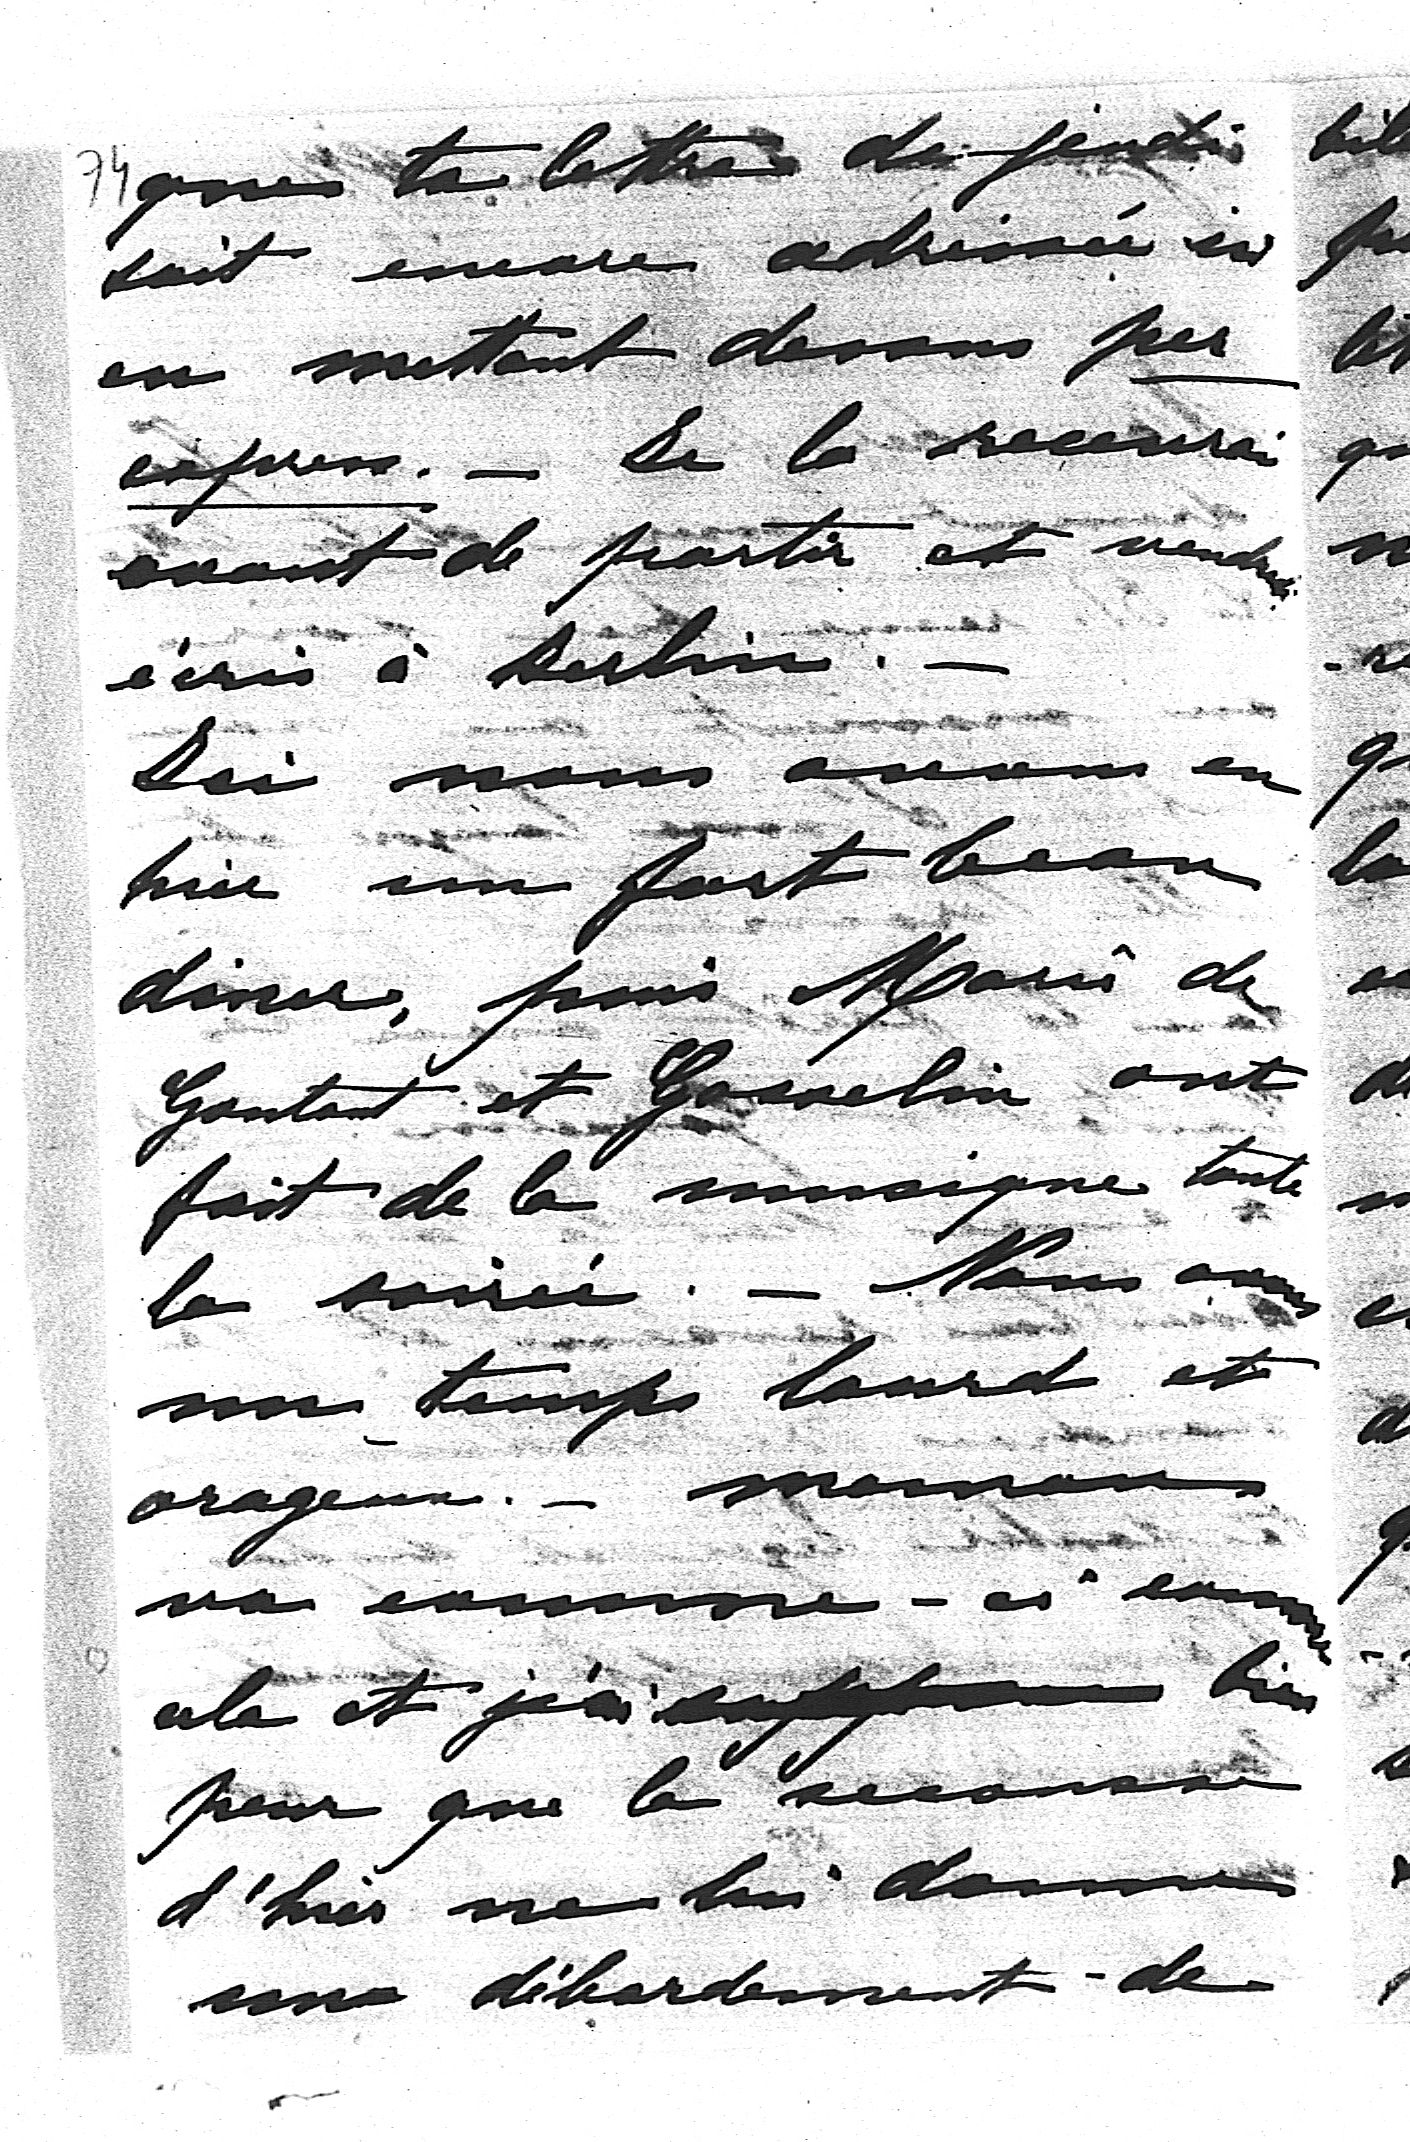 74
que ta lettre de jeudi
soit encore adressée ici
en mettant dessus per
express. — Je la recevrai
avant de partir et vendredi
écris à Berlin. —
Ici nous avons eu
hier un fort beau
diner, puis Marie de
Gontaut et Gosselin ont
fait de la musique toute
la soirée. — Nous avons
un temps lourd et
orageux. — maman
va comme-ci comme
cela et j'ai bien
peur que la secousse
d'hier ne lui donne
un débordement de